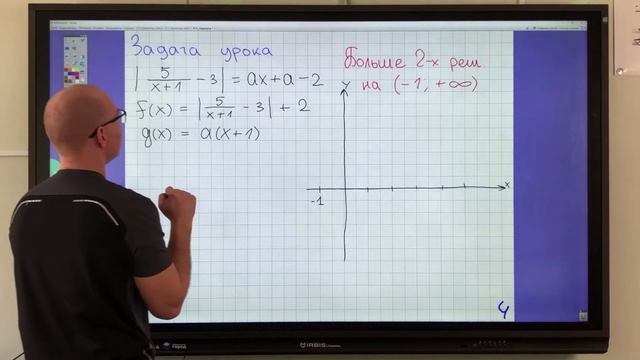 Задача урока
| 5/(x+1) - 3 | = ax + a - 2
f(x) = | 5/(x+1) - 3 | + 2
g(x) = a(x+1)
Больше 2-х реш
на (-1; +∞)
y
x
-1
4
IRBIS